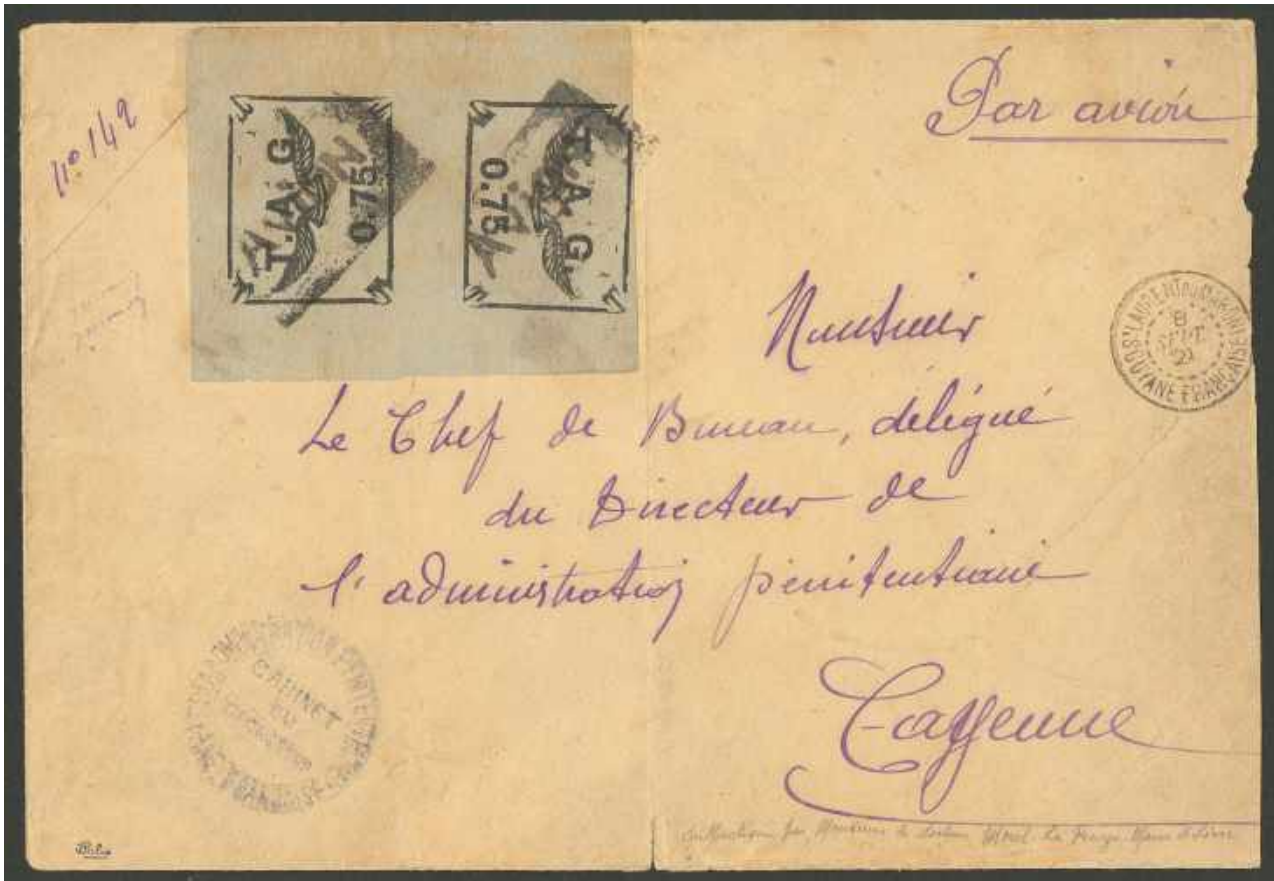 Par avion
nº 142
T. A. G.
0.75
T. A. G.
0.75
AVION
ST LAURENT DU MARONI
8
SEPT
21
GUYANE FRANÇAISE
Monsieur
Le Chef de Bureau, délégué
du Directeur de
l'administration pénitentiaire
Cayenne
ADMINISTRATION PÉNITENTIAIRE
CABINET
DU
DIRECTEUR